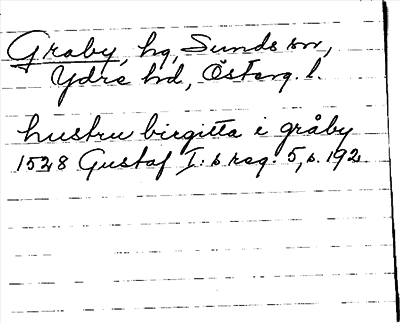 Graby, hg, Sunds sn,
Ydre hd, Österg. l.
hustru birgitta i gråby
1528 Gustaf I:s reg. 5, s. 192